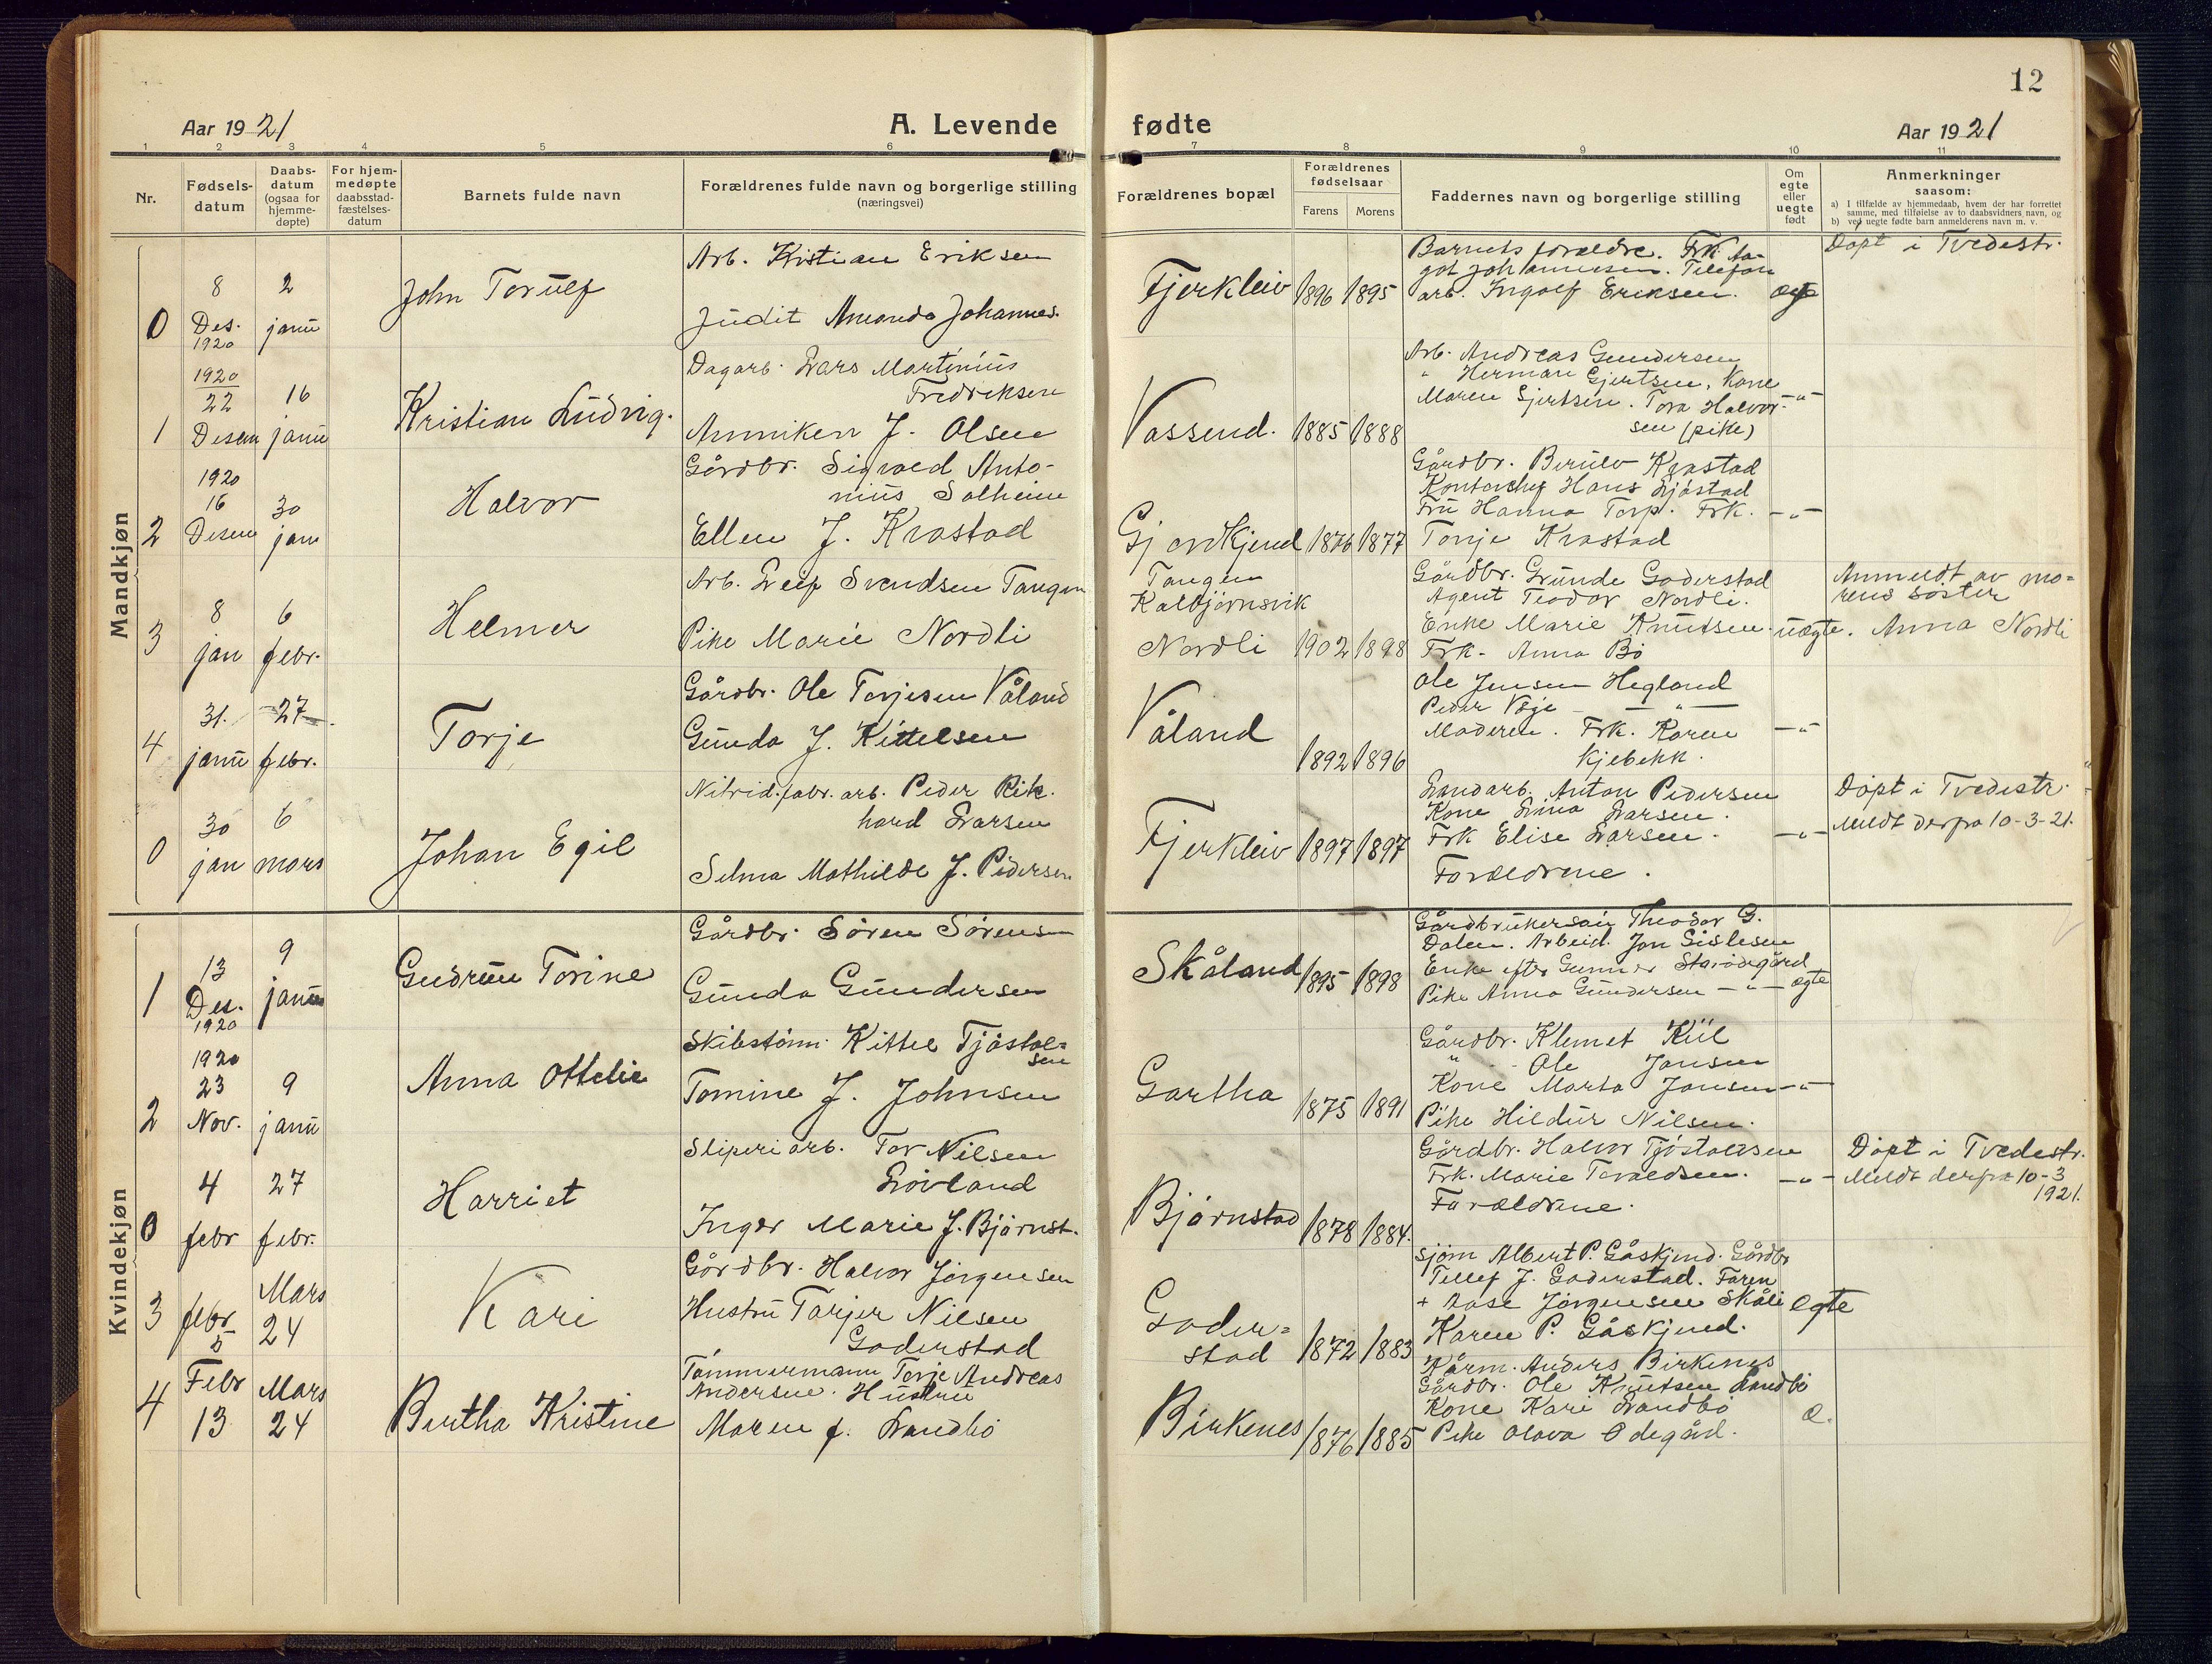 12
Aar 1921
A. Levende fødte
Aar 1921
1 2 3 4 5 6 7 8 9 10 11
Nr.
Fødsels-
datum
Daabs-
datum
(ogsaa for
hjemme-
døpte)
For hjem-
medøpte
daabsstad-
fæstelses-
datum
Barnets fulde navn
Forældrenes fulde navn og borgerlige stilling
(næringsvei)
Forældrenes bopæl
Forældrenes
fødselsaar
Farens Morens
Faddernes navn og borgerlige stilling
Om
egte
eller
uegte
født
Anmerkninger
saasom:
a) I tilfælde av hjemmedaab, hvem der har forrettet
samme, med tilføielse av to daabsvidners navn, og
b) ved uegte fødte barn anmelderens navn m. v.
Mandkjøn
0
8
Des.
1920
2
janu
John Torulf
Arb. Kristian Eriksen
Judit Amanda Johannes.
Fjerkleiv
1896 1895
Barnets forældre. Frk. Aa-
got Johannesen. Telefon
arb. Ingolf Eriksen.
egte
Døpt i Tvedestr.
1
1920
22
Desem
16
janu
Kristian Ludvig.
Dagarb. Lars Martinius
Fredriksen
Anniken J. Olsen
Vassend.
1885 1888
Arb. Andreas Gundersen
" Herman Gjertsen, Kone
Maren Gjertsen. Tora Halvor-
sen (pike)
-"-
2
1920
16
Desem
30
janu
Halvor
Gårdbr. Sigvald Anto-
nius Solheim
Ellen J. Krastad
Gjerdkjend
1876 1877
Gårdbr. Berulv Krastad
Kontorchef Hans Sjåstad
Fru Hanna Torp. Frk.
Torije Krastad
-"-
3
8
jan
6
febr.
Helmer
Arb. Leif Svendsen Tangen
Pike Marie Nordli
Tangen
Kalbjørnsvik
Nordli
1902 1898
Gårdbr. Grunde Goderstad
Agent Teodor Nordli.
Enke Marie Knutsen.
Frk. Anna Bø
uegte.
Anmeldt av mo-
rens søster
Anna Nordli
4
31.
janu
27
febr.
Torje
Gårdbr. Ole Torjesen Våland
Gunda J. Kittelsen
Våland
1892 1896
Ole Jensen Hegland
Peder Våje - " -
Moderen. Frk. Karen
Kjebekk.
-"-
0
30
jan
6
mars
Johan Egil
Nitrid.fabr. arb. Peder Rik-
hard Larsen
Selma Mathilde J. Pedersen
Fjerkleiv
1897 1897
Landarb. Anton Pedersen
Kone Lina Larsen.
Frk Elise Larsen.
Forældrene.
-"-
Døpt i Tvedestr.
Meldt derfra 10-3-21.
Kvindekjøn
1
13
Des.
1920
9
janu
Gudrun Torine
Gårdbr. Søren Sørensen
Gunda Gundersen
Skåland
1895 1898
Gårdbrukersøn Theodor G.
Dalen. Arbeid. Jon Gislesen
Enke efter Gunner
Pike Anna Gundersen - " -
egte
2
1920
23
Nov.
9
janu
Anna Ottelie
Skibstømr. Kittel Tjøstol-
sen
Tomine J. Johnsen
Gartha
1875 1891
Gårdbr. Klemet Kiil
" Ole Jansen
Kone Marta Jansen
Pike Hildur Nilsen.
-"-
0
4
febr
27
febr.
Harriet
Sliperiarb. Tor Nilsen
Løvland
Inger Marie J. Bjørnst.
Bjørnstad
1878 1884.
Gårdbr. Halvor Tjøstolvsen
Frk. Marie Tovaldsen.
Forældrene.
-"-
Døpt i Tvedestr.
Meldt derfra 10-3
1921.
3
febr
5
Mars
24
Kari
Gårdbr. Halvor Jørgensen
Hustru Tarjer Nilsen
Goderstad
Goder-
stad
1872 1883
Sjøm Albert P. Gåskjend. Gårdbr
Tellef J. Goderstad. Faren
+ Aase Jørgensen Skåli
Karen P. Gåskjend.
egte
4
Febr
13
Mars
24
Bertha Kristine
Tømmermann Torje Andreas
Andersen. Hustru
Maren f. Landbø
Birkenes
1876 1885
Anders Birkenes
Gårdbr. Ole Knutsen Landbø
Kone Kari Landbø
Pike Olava Ødegård.
e.